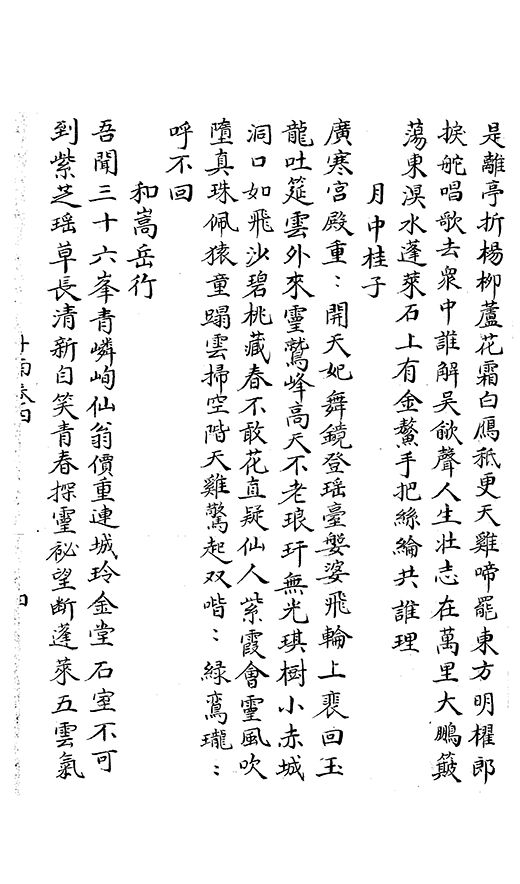 是離亭折楊柳蘆花霜白鴈秪更天雞啼罷東方明櫂郎
捩舵唱歌去衆中誰解吳歈聲人生壯志在萬里大鵬簸
蕩東溟水蓬萊石上有金鰲手把絲綸共誰理
月中桂子
廣寒宮殿重：開天妃舞鏡登瑶臺媻娑飛輪上裴回玉
龍吐筵雲外來靈鷲峰高天不老琅玕無光琪樹小赤城
洞口如飛沙碧桃藏春不敢花直疑仙人紫霞會靈風吹
墮真珠佩猿童蹋雲掃空階天雞驚起双喈：緑鸞瓏：
呼不回
和嵩岳行
吾聞三十六峯青嶙峋仙翁價重連城玲金堂石室不可
到紫芝瑶草長清新自笑青春探靈祕望断蓬萊五雲氣